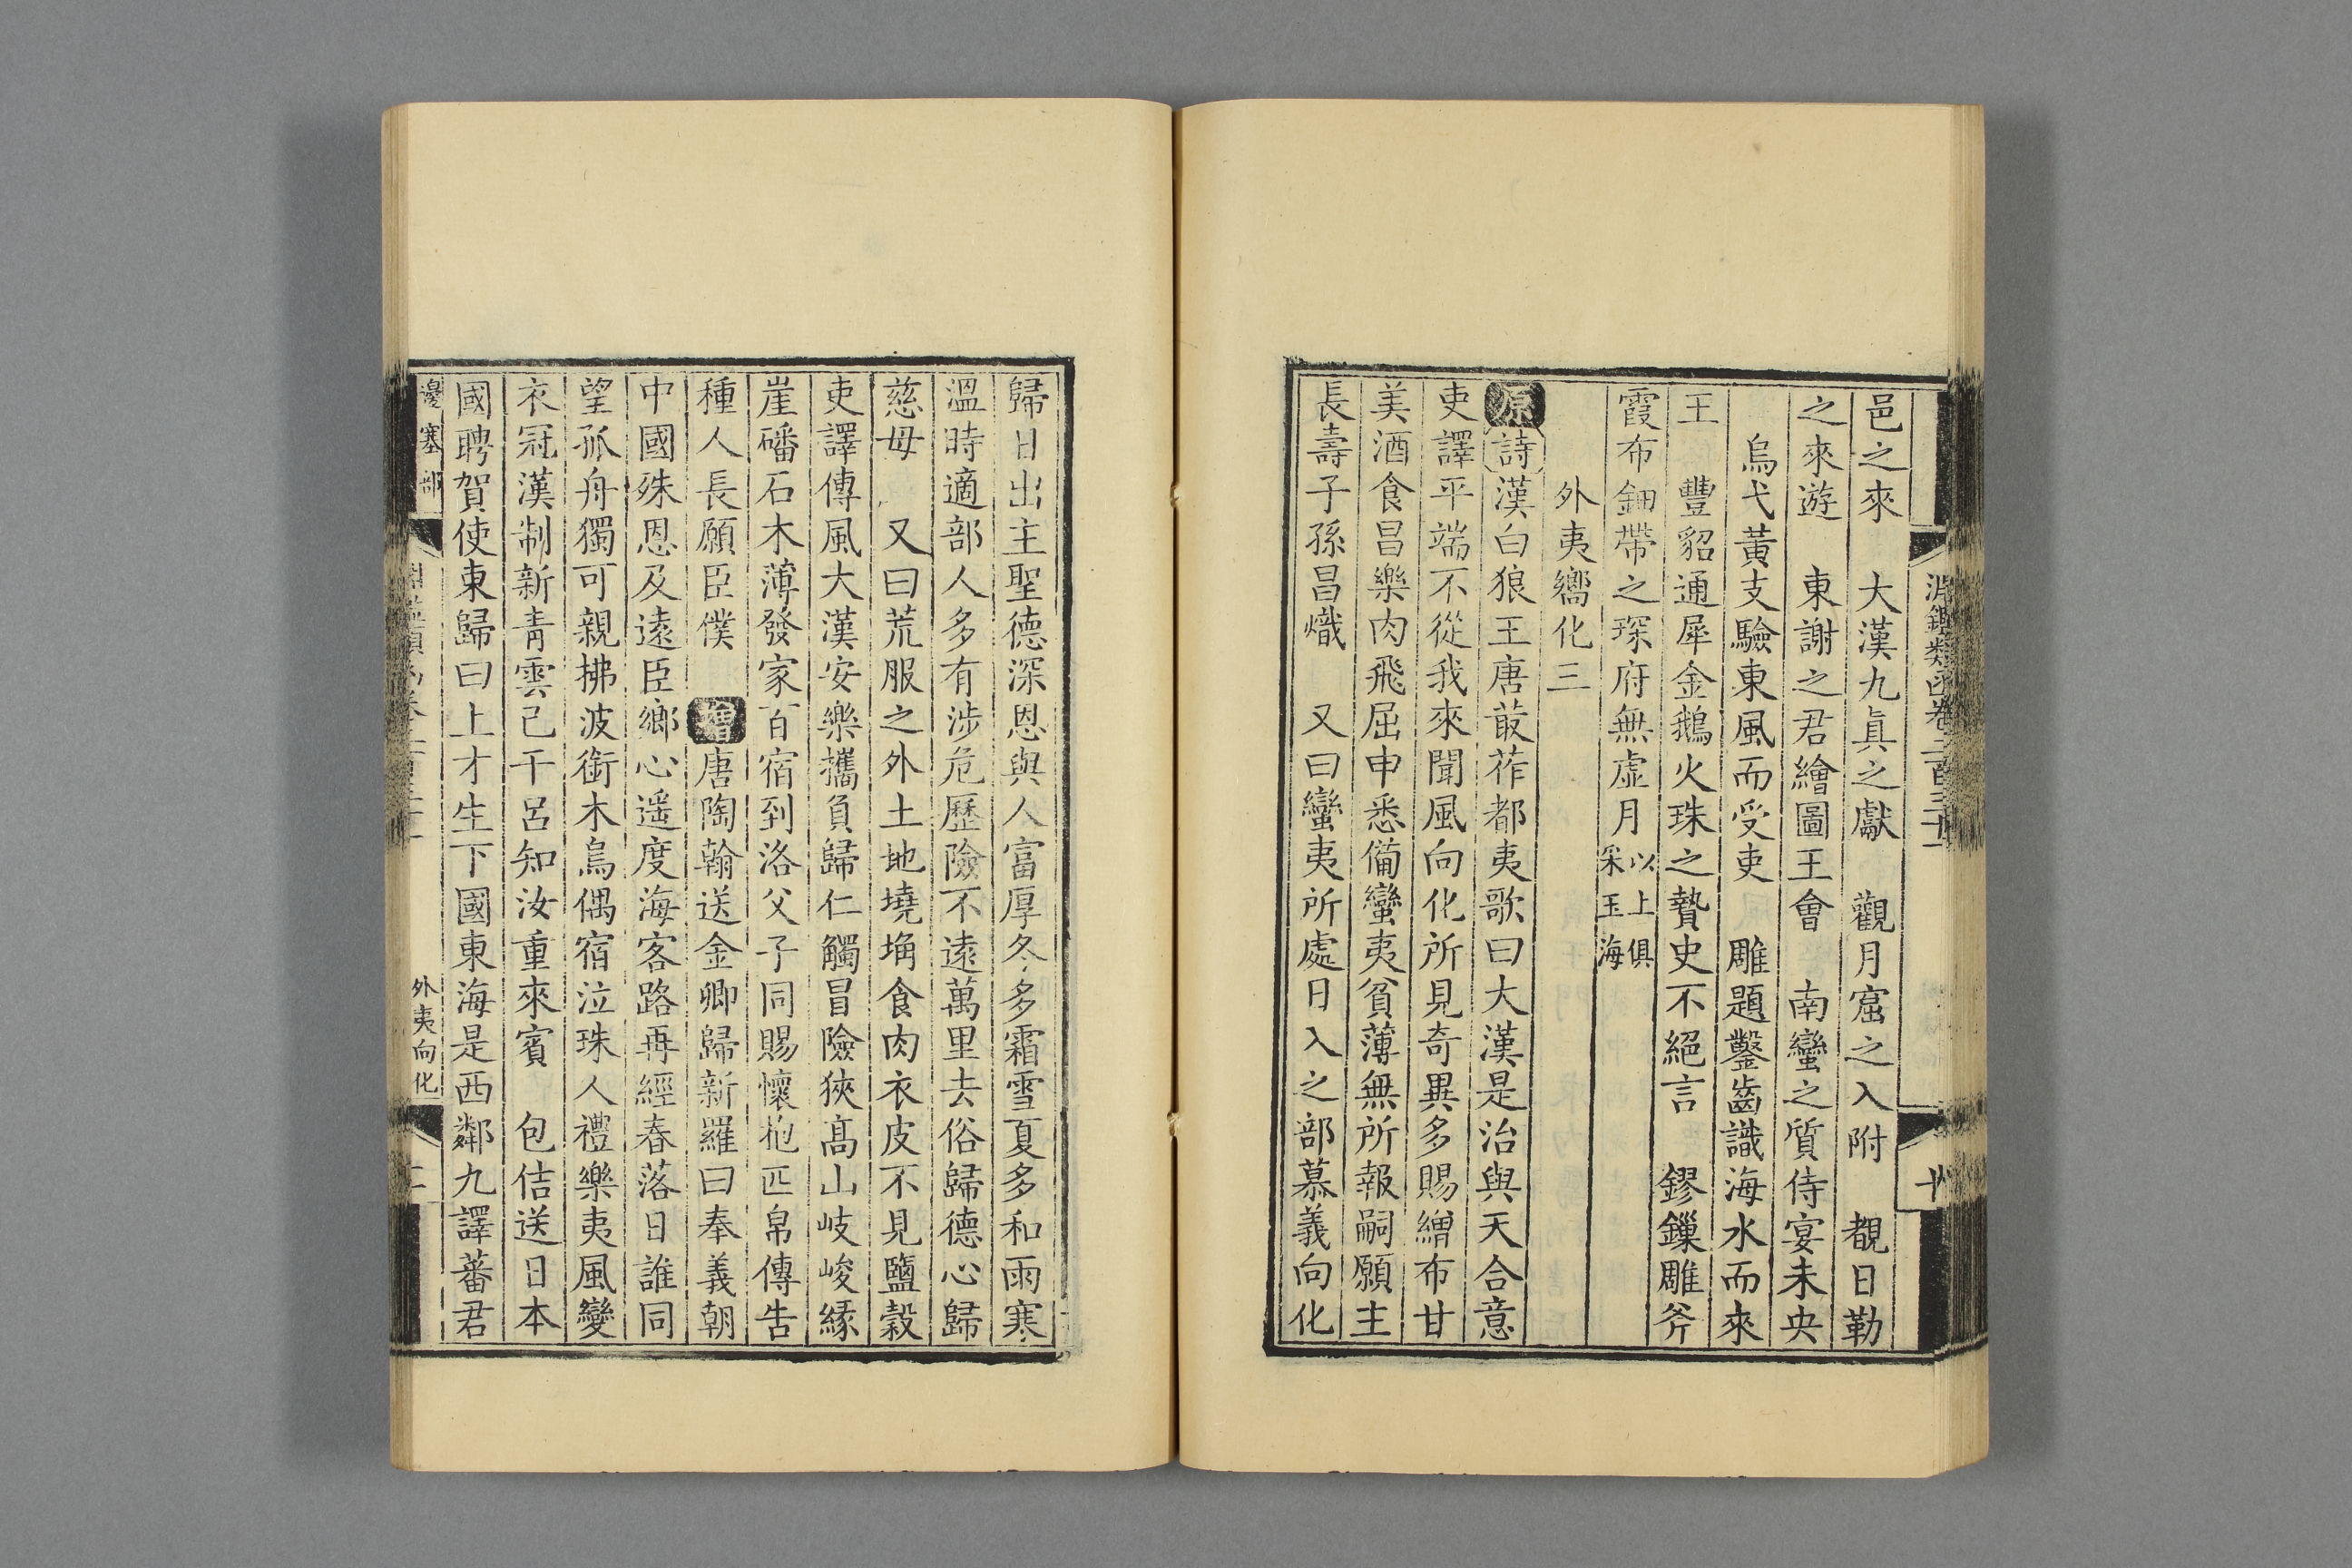 淵鑑類函卷二百三十
邑之來　大漢九眞之獻　觀月窟之入附　覩日勒
之來遊　東謝之君繪圖王會　南蠻之質侍宴未央
烏弋黃支驗東風而受吏　雕題鑿齒識海水而來
王　豐貂通犀金鵝火珠之贄史不絕言　鏐鏁雕斧
霞布鈿帶之琛府無虛月以上俱采玉海
外夷嚮化三
原詩漢白狼王唐菆莋都夷歌曰大漢是治與天合意
吏譯平端不從我來聞風向化所見奇異多賜繒布甘
美酒食昌樂肉飛屈申悉備蠻夷貧薄無所報嗣願主
長壽子孫昌熾　又曰蠻夷所處日入之部慕義向化
歸日出主聖德深恩與人富厚冬多霜雪夏多和雨寒
溫時適部人多有涉危歷險不遠萬里去俗歸德心歸
慈母　又曰荒服之外土地墝埆食肉衣皮不見鹽穀
吏譯傳風大漢安樂攜負歸仁觸冒險狹高山岐峻緣
崖磻石木薄發家百宿到洛父子同賜懷抱匹帛傳告
種人長願臣僕　增唐陶翰送金卿歸新羅曰奉義朝
中國殊恩及遠臣鄉心遥度海客路再經春落日誰同
望孤舟獨可親拂波銜木鳥偶宿泣珠人禮樂夷風變
衣冠漢制新青雲已干呂知汝重來賓　包佶送日本
國聘賀使東歸曰上才生下國東海是西鄰九譯蕃君
邊塞部
外夷向化